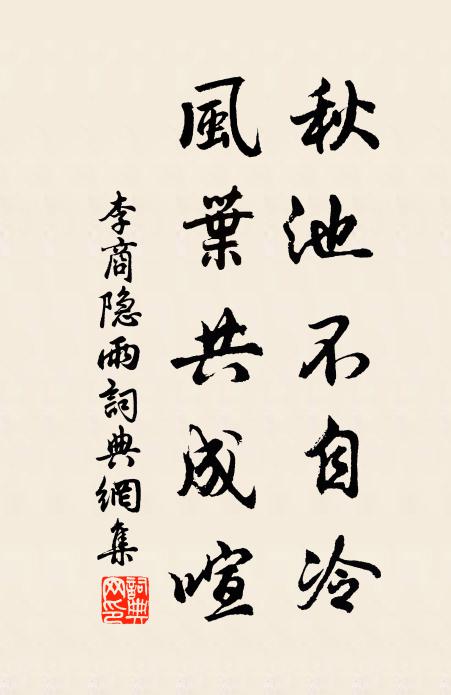 秋池不自冷
風葉共成喧
李商隐雨詞典網集
詞典
网印